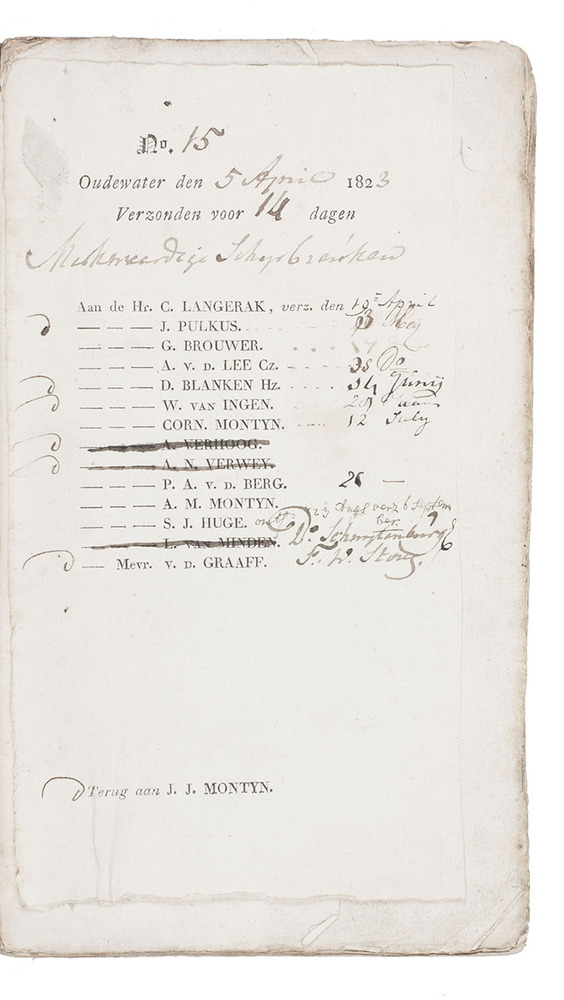 No. 15
Oudewater den 5 April 1823
Verzonden voor 14 dagen
Merkwaardige Schipbreuken
Aan de Hr. C. LANGERAK, verz. den 19 April
— — — J. PULKUS. 3 Meij
— — — G. BROUWER. 17
— — — A. v. d. LEE Cz. Do
— — — D. BLANKEN Hz. 14 Junij
— — — W. VAN INGEN. 28
— — — CORN. MONTYN. 12 July
— — — A. VERHOOG.
— — — A. N. VERWEY.
— — — P. A. v. d. BERG. 26 —
— — — A. M. MONTYN. 23 Augs verz 6 Septem
— — — S. J. HUGE. ber
— — — L. VAN MINDEN. Ds. Schuytenburg
— Mevr. v. d. GRAAFF. F. W.
Terug aan J. J. MONTYN.